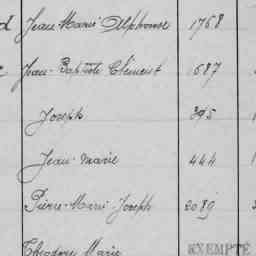 d Jean Marie Alphonse 1768
e Jean-Baptiste Clément 1687
Joseph 395
Jean-Marie 444
Pierre-Marie Joseph 2089
Théodore Marie EXEMPTÉ